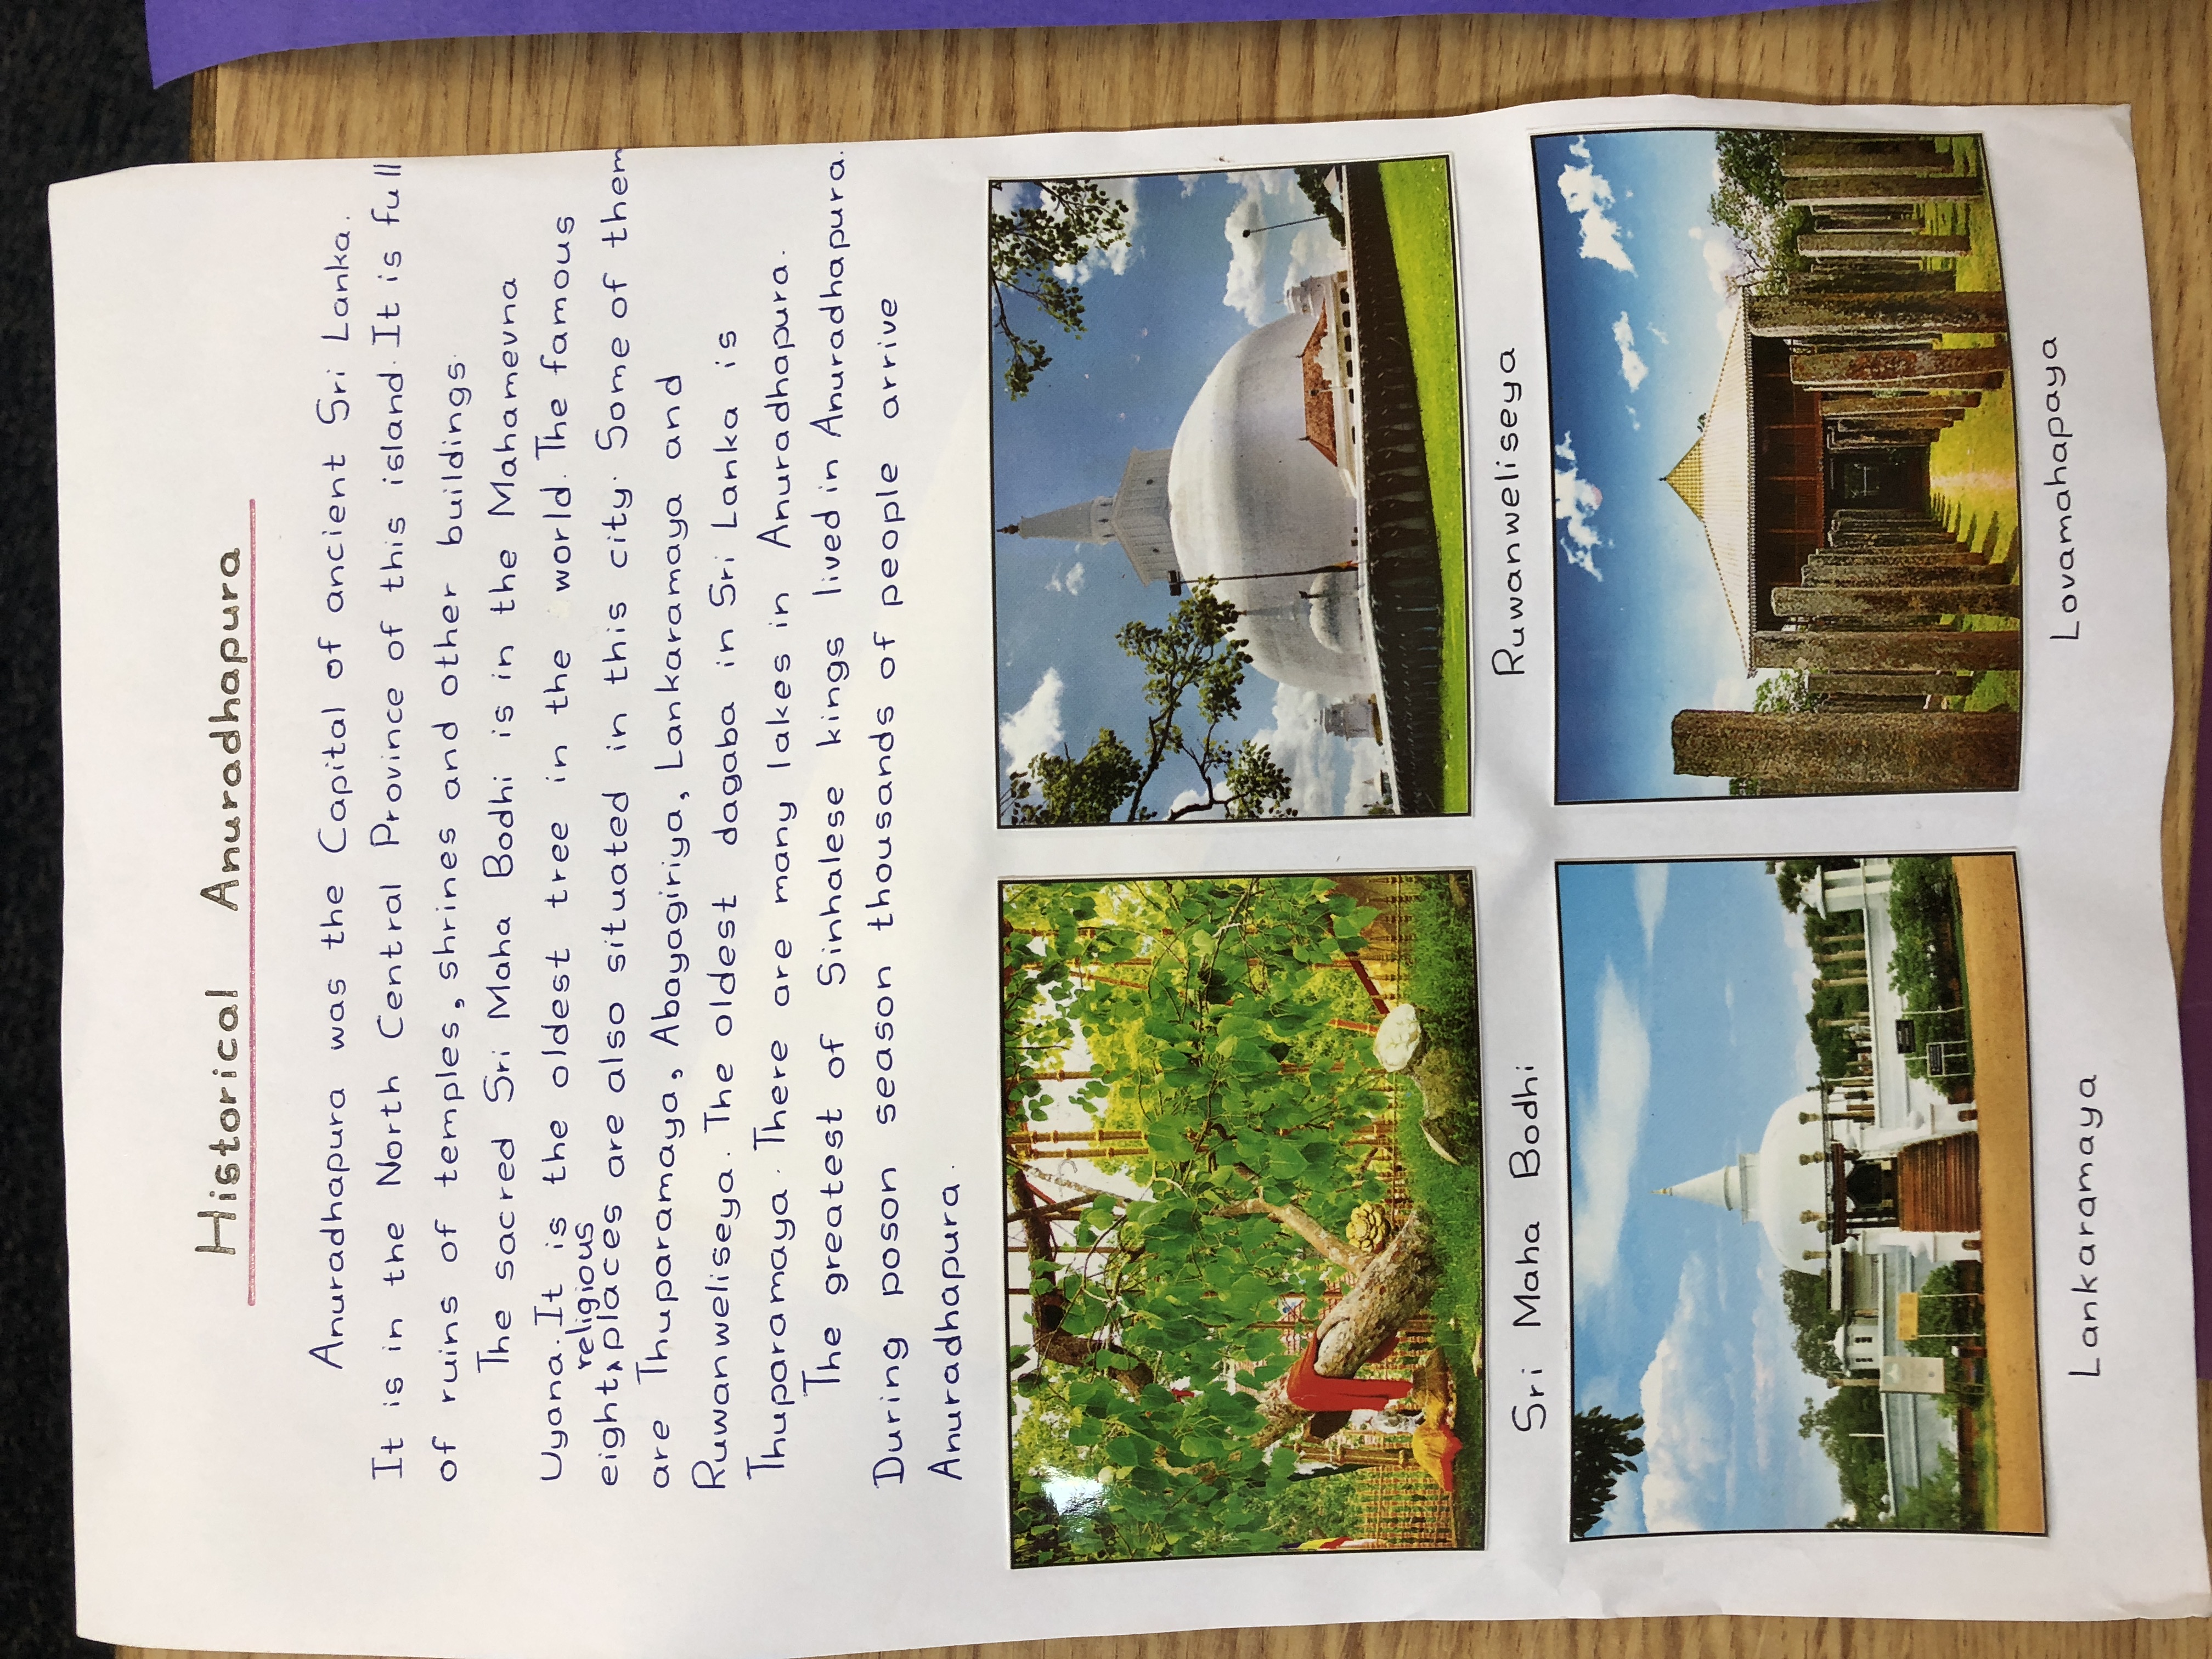 Historical Anuradhapura
Anuradhapura was the Capital of ancient Sri Lanka.
It is in the North Central Province of this island. It is full
of ruins of temples, shrines and other buildings.
The sacred Sri Maha Bodhi is in the Mahamevna
Uyana. It is the oldest tree in the world. The famous
religious
eight places are also situated in this city. Some of them
are Thuparamaya, Abayagiriya, Lankaramaya and
Ruwanweliseya. The oldest dagaba in Sri Lanka is
Thuparamaya. There are many lakes in Anuradhapura.
The greatest of Sinhalese kings lived in Anuradhapura.
During poson season thousands of people arrive
Anuradhapura.
Sri Maha Bodhi
Ruwanweliseya
Lankaramaya
Lovamahapaya